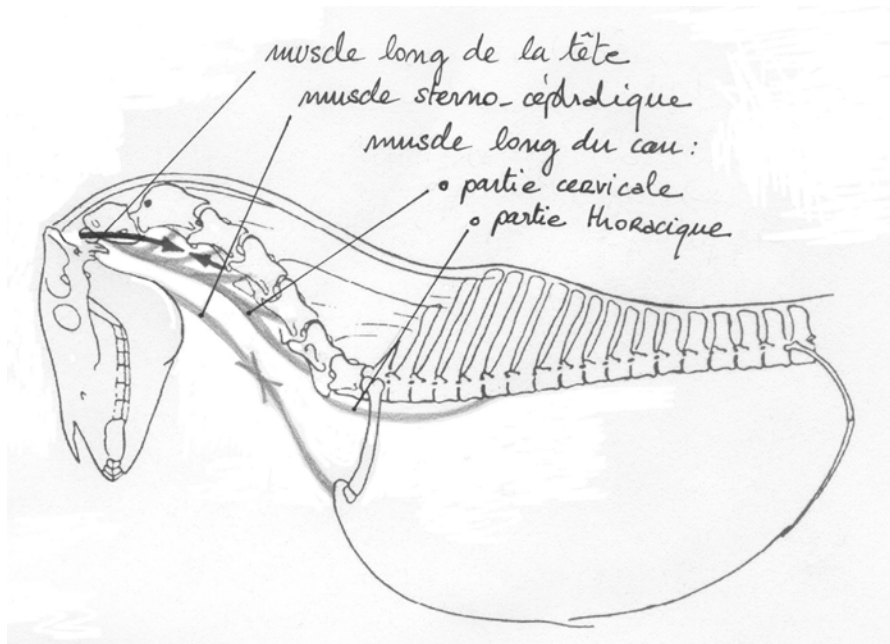 muscle long de la tête
muscle sterno-céphalique
muscle long du cou :
• partie cervicale
• partie thoracique